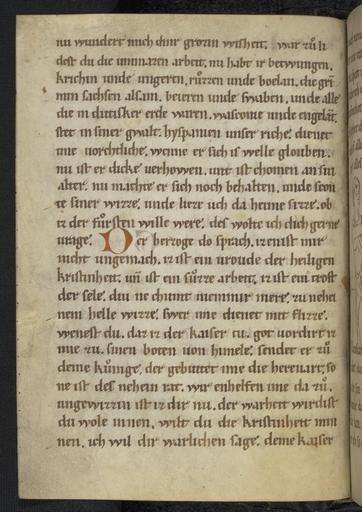 nu wundert mich diner grozin wisheit. war zů li
dest du die uminazen arbeit. nu habt ir betwungen.
krichin unde ungeren. růzzen unde boelan. die gri
min sachsen alsam. beieren unde swaben. unde alle
die in dutisker erde waren. wascome unde engelāt.
stet in siner gwalt. hyspanien unser riche. dienet
ime vorchtliche. wenne er sich is welle glouben.
nu ist er dicke verhowen. unt ist chomen an sin
alter. nu machte er sich noch behalten. unde scon
te siner wizze. unde liezz ich da heime sizze. ob
iz der fůrsten wille were. des wolte ich dich gerne
vrage. Der herzoge do sprach. iz enist mir
nicht ungemach. iz ist ein vroude der heiligen
kristinheit. uñ ist ein sůzze arbeit. iz ist ein trost
der sele. diu ne chumt niemmir mere. zu nehei
nem helle wizze. swer ime dienet mit flizze.
wenest du. daz iz der kaiser tu. got vordirt iz
ime zu. sinen boten von himele. sendet er zů
deme kůnige. der gebiutet ime die herevart. so
ne ist des nehein rat. wir enhelfen ime da zů.
ungewizzin ist iz dir nu. der warheit wirdist
du wole innen. wilt du die kristinheit min
nen. ich wil dir warlichen sage. deme kaiser